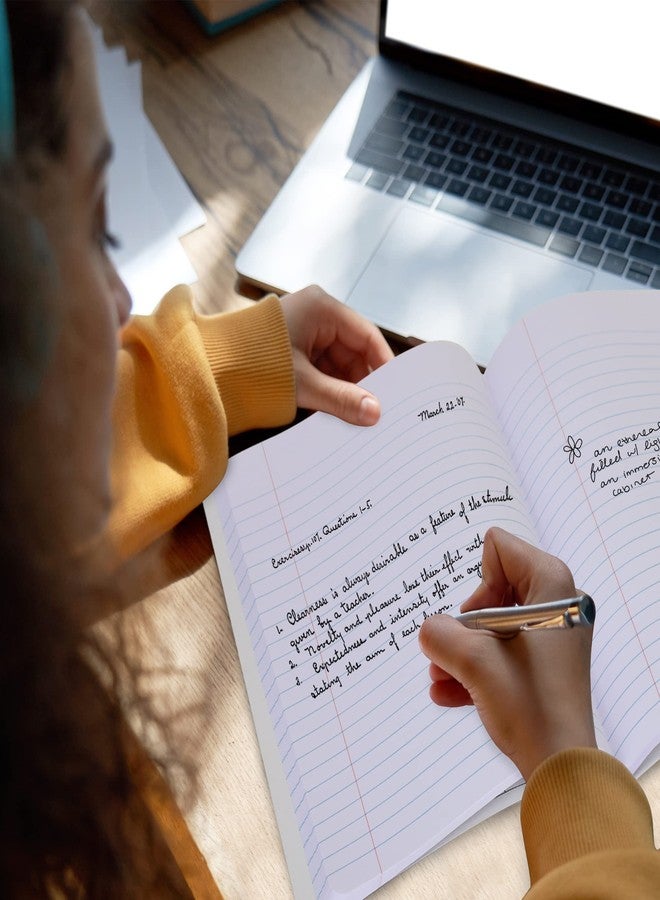 March 22. 07.
Exercises p. 107. Questions 1-5.
1. Clearness is always desirable as a feature of the stimuli
given by a teacher.
2. Novelty and pleasure lose their effect with
3. Expectedness and intensity offer an argu
stating the aim of each lesson.
an ethereal
filled w/ lig
an immersi
cabinet